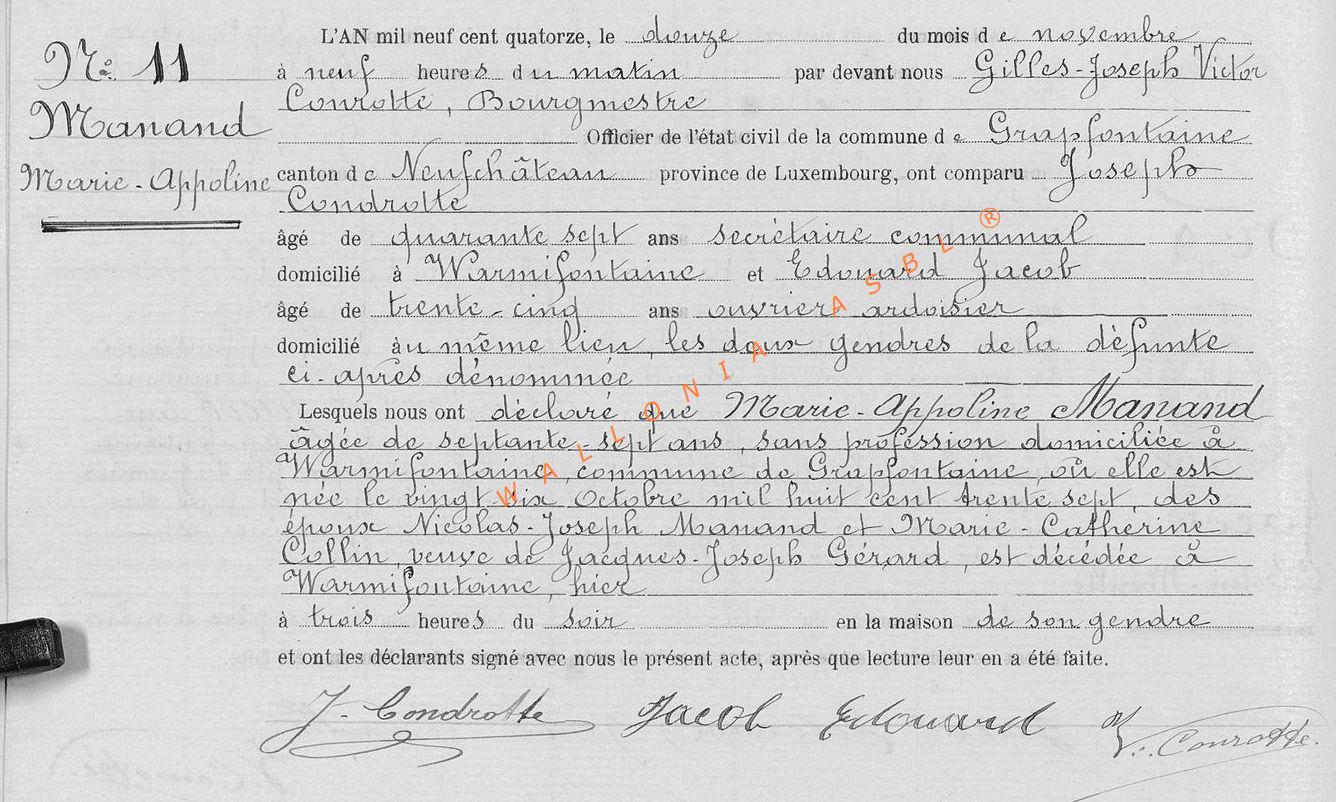 L'AN mil neuf cent quatorze, le douze du mois de novembre
N° 11
à neuf heures du matin par devant nous Gilles-Joseph Victor
Conrotte, Bourgmestre
Manand
Officier de l'état civil de la commune de Grapfontaine
Marie-Appoline
canton de Neufchâteau province de Luxembourg, ont comparu Joseph
Condrotte
âgé de quarante sept ans secrétaire communal
domicilié à Warmifontaine et Edouard Jacob
âgé de trente-cinq ans ouvrier ardoisier
domicilié au même lieu, les deux gendres de la défunte
ci-après dénommée
Lesquels nous ont déclaré que Marie-Appoline Manand
âgée de septante-sept ans, sans profession domiciliée à
Warmifontaine, commune de Grapfontaine, où elle est
née le vingt six Octobre mil huit cent trente sept, des
époux Nicolas-Joseph Manand et Marie-Catherine
Collin, veuve de Jacques-Joseph Gérard, est décédée à
Warmifontaine, hier
à trois heures du soir en la maison de son gendre
et ont les déclarants signé avec nous le présent acte, après que lecture leur en a été faite.
J. Condrotte Jacob Edouard V. Conrotte.
WALLONIA ASBL ®